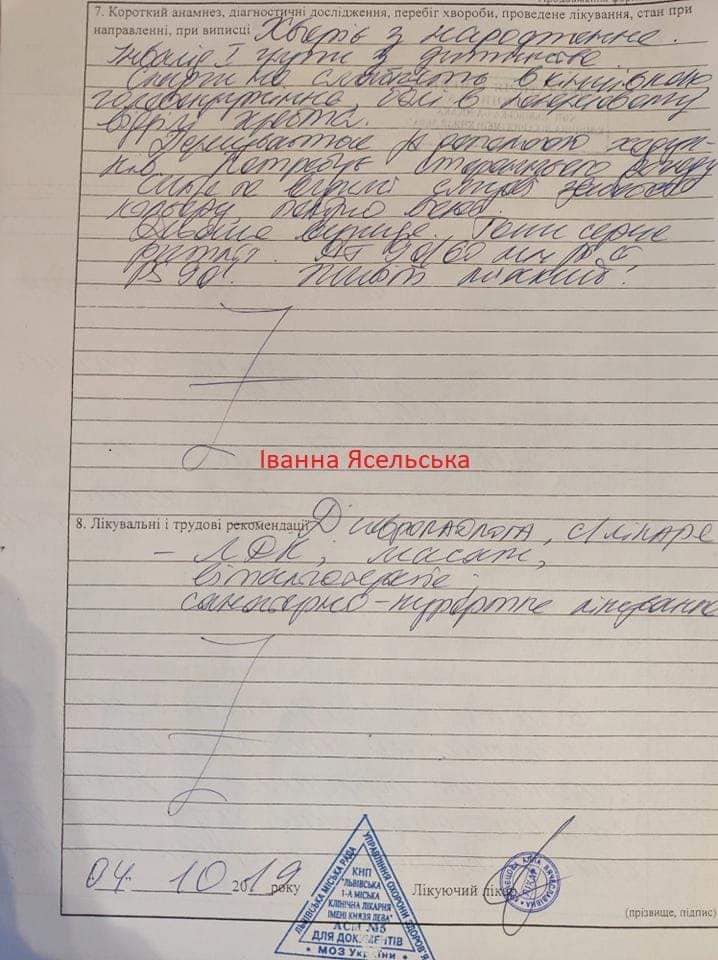 7. Короткий анамнез, діагностичні дослідження, перебіг хвороби, проведене лікування, стан при
направленні, при виписці Хворіє з народження.
Інвалід І групи з дитинства.
Скарги на слабкість в кінцівках
головокружіння, болі в
відділі хребта.
Пересувається за допомогою ходун-
ків. Потребує стороннього догляду
Шкіра та видимі слизові
кольору,
Дихання везикул. Тони серця
ритм. АТ 90/60 мм рт с
Ps 90'. Живіт м'який.
Іванна Ясельська
8. Лікувальні і трудові рекомендації Д невропатолога, с/лікаря
- ЛФК, масаж,
вітамінотерапія,
санаторно-курортне лікування
04 10 2019 року
Лікуючий лікар
(прізвище, підпис)
ЛЬВІВСЬКА МІСЬКА РАДА
УПРАВЛІННЯ ОХОРОНИ ЗДОРОВ'Я
КНП
"ЛЬВІВСЬКА
1-А МІСЬКА
КЛІНІЧНА ЛІКАРНЯ
ІМЕНІ КНЯЗЯ ЛЕВА"
АСМ №5
ДЛЯ ДОКУМЕНТІВ
МОЗ України